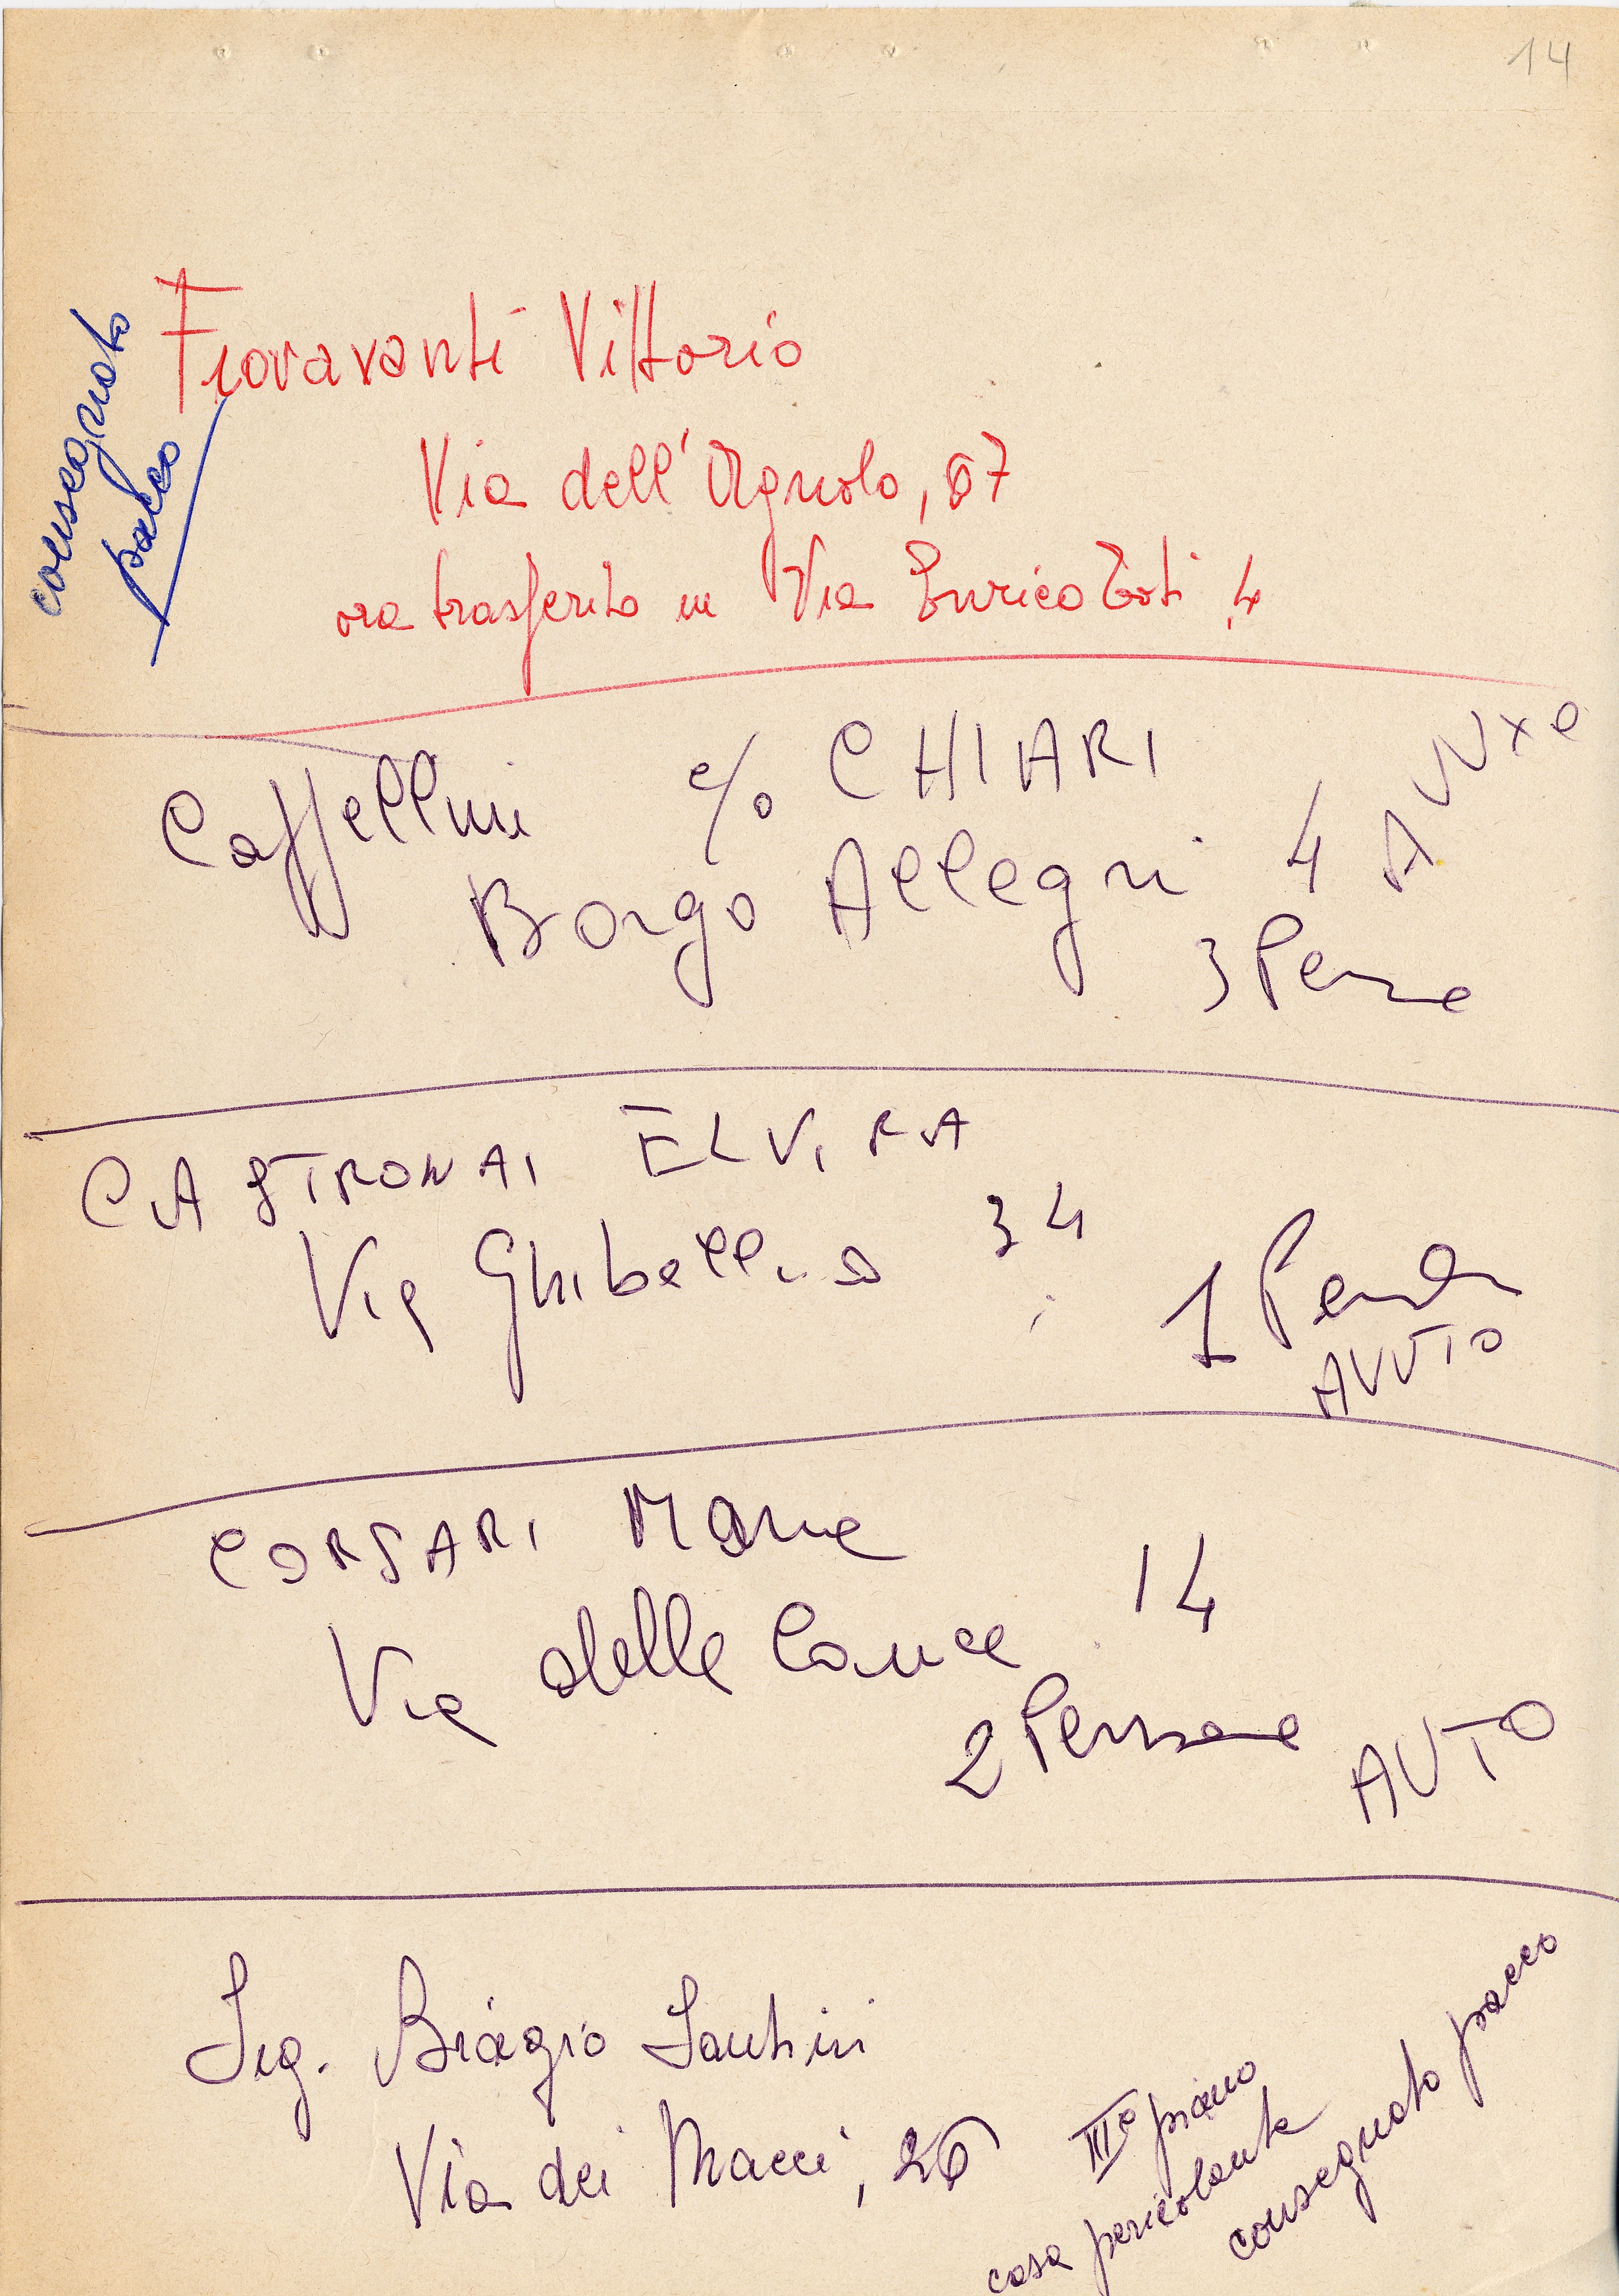 14
consegnato
pacco
Fioravanti Vittorio
Via dell'Agnolo, 67
ora trasferito in Via Enrico Toti, 4
Caffellini c/o CHIARI
Borgo Allegri 4
3 Persone
CASTRONAI ELVIRA
Via Ghibellina 34
1 Persona
AVUTO
CORSARI Maria
Via delle Conce 14
2 Persone AVUTO
Sig. Biagio Santini
Via dei Macci, 26
III° piano
casa pericolante
consegnato pacco